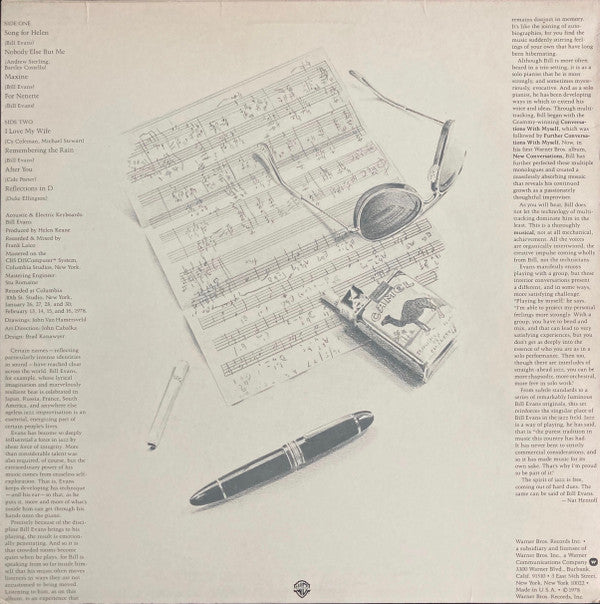 SIDE ONE
Song for Helen
(Bill Evans)
Nobody Else But Me
(Andrew Sterling,
Bartley Costello)
Maxine
(Bill Evans)
For Nenette
(Bill Evans)
SIDE TWO
I Love My Wife
(Cy Coleman, Michael Stewart)
Remembering the Rain
(Bill Evans)
After You
(Cole Porter)
Reflections in D
(Duke Ellington)
Acoustic & Electric Keyboards:
Bill Evans
Produced by Helen Keane
Recorded & Mixed by
Frank Laico
Mastered on the
CBS DISComputer™ System,
Columbia Studios, New York.
Mastering Engineer:
Stu Romaine
Recorded at Columbia
30th St. Studio, New York,
January 26, 27, 28, and 30;
February 13, 14, 15, and 16, 1978.
Drawings: John Van Hamersveld
Art Direction: John Cabalka
Design: Brad Kanawyer
Certain names—reflecting
particularly intense identities
in sound—have reached clear
across the world. Bill Evans,
for example, whose lyrical
imagination and marvelously
resilient beat is celebrated in
Japan, Russia, France, South
America, and anywhere else
ageless jazz improvisation is an
essential, energizing part of
certain people's lives.
Evans has become so deeply
influential a force in jazz by
sheer force of integrity. More
than considerable talent was
also required, of course, but the
extraordinary power of his
music comes from ceaseless self-
exploration. That is, Evans
keeps developing his technique
—and his ear—so that, as he
puts it, more and more of what's
inside him can get through his
hands onto the piano.
Precisely because of the disci-
pline Bill Evans brings to his
playing, the result is emotion-
ally penetrating. And so it is
that crowded rooms become
quiet when he plays, for Bill is
speaking from so far inside him-
self that his music often moves
listeners in ways they are not
accustomed to being moved.
Listening to him, as on this
album, is an experience that
CAMEL
remains disjunct in memory.
It's like the joining of auto-
biographies, for you find the
music suddenly stirring feel-
ings of your own that have long
been hibernating.
Although Bill is more often
heard in a trio setting, it is as a
solo pianist that he is most
strongly, and sometimes myste-
riously, evocative. And as a solo
pianist, he has been developing
ways in which to extend his
voice and ideas. Through multi-
tracking, Bill began with the
Grammy-winning Conversa-
tions With Myself, which was
followed by Further Conversa-
tions With Myself. Now, in
his first Warner Bros. album,
New Conversations, Bill has
further perfected these multiple
monologues and created a
seamlessly absorbing music
that reveals his continued
growth as a passionately
thoughtful improviser.
As you will hear, Bill does
not let the technology of multi-
tracking dominate him in the
least. This is a thoroughly
musical, not at all mechanical,
achievement. All the voices
are organically interwined, the
creative impulse coming wholly
from Bill, not the technicians.
Evans manifestly enjoys
playing with a group, but these
interior conversations present
a different, and in some ways,
more satisfying challenge.
"Playing by myself," he says,
"I'm able to project my personal
feelings more strongly. With a
group, you have to bend and
mix, and that can lead to very
satisfying experiences, but you
don't get as deeply into the
essence of who you are as in a
solo performance. Then too,
though there are interludes of
straight-ahead jazz, you can be
more rhapsodic, more orchestral,
more free in solo work."
From subtle standards to a
series of remarkably luminous
Bill Evans originals, this set
reinforces the singular place of
Bill Evans in the jazz field. Jazz
is a way of playing, he has said,
that is "the purest tradition in
music this country has had.
It has never bent to strictly
commercial considerations, and
so it has made music for its
own sake. That's why I'm proud
to be part of it."
The spirit of jazz is free,
coming out of hard dues. The
same can be said of Bill Evans.
—Nat Hentoff
Warner Bros. Records Inc. •
a subsidiary and licensee of
Warner Bros. Inc., a Warner
Communications Company
3300 Warner Blvd., Burbank,
Calif. 91510 • 3 East 54th Street,
New York, New York 10022 •
Made in U.S.A. • © 1978
Warner Bros. Records, Inc.